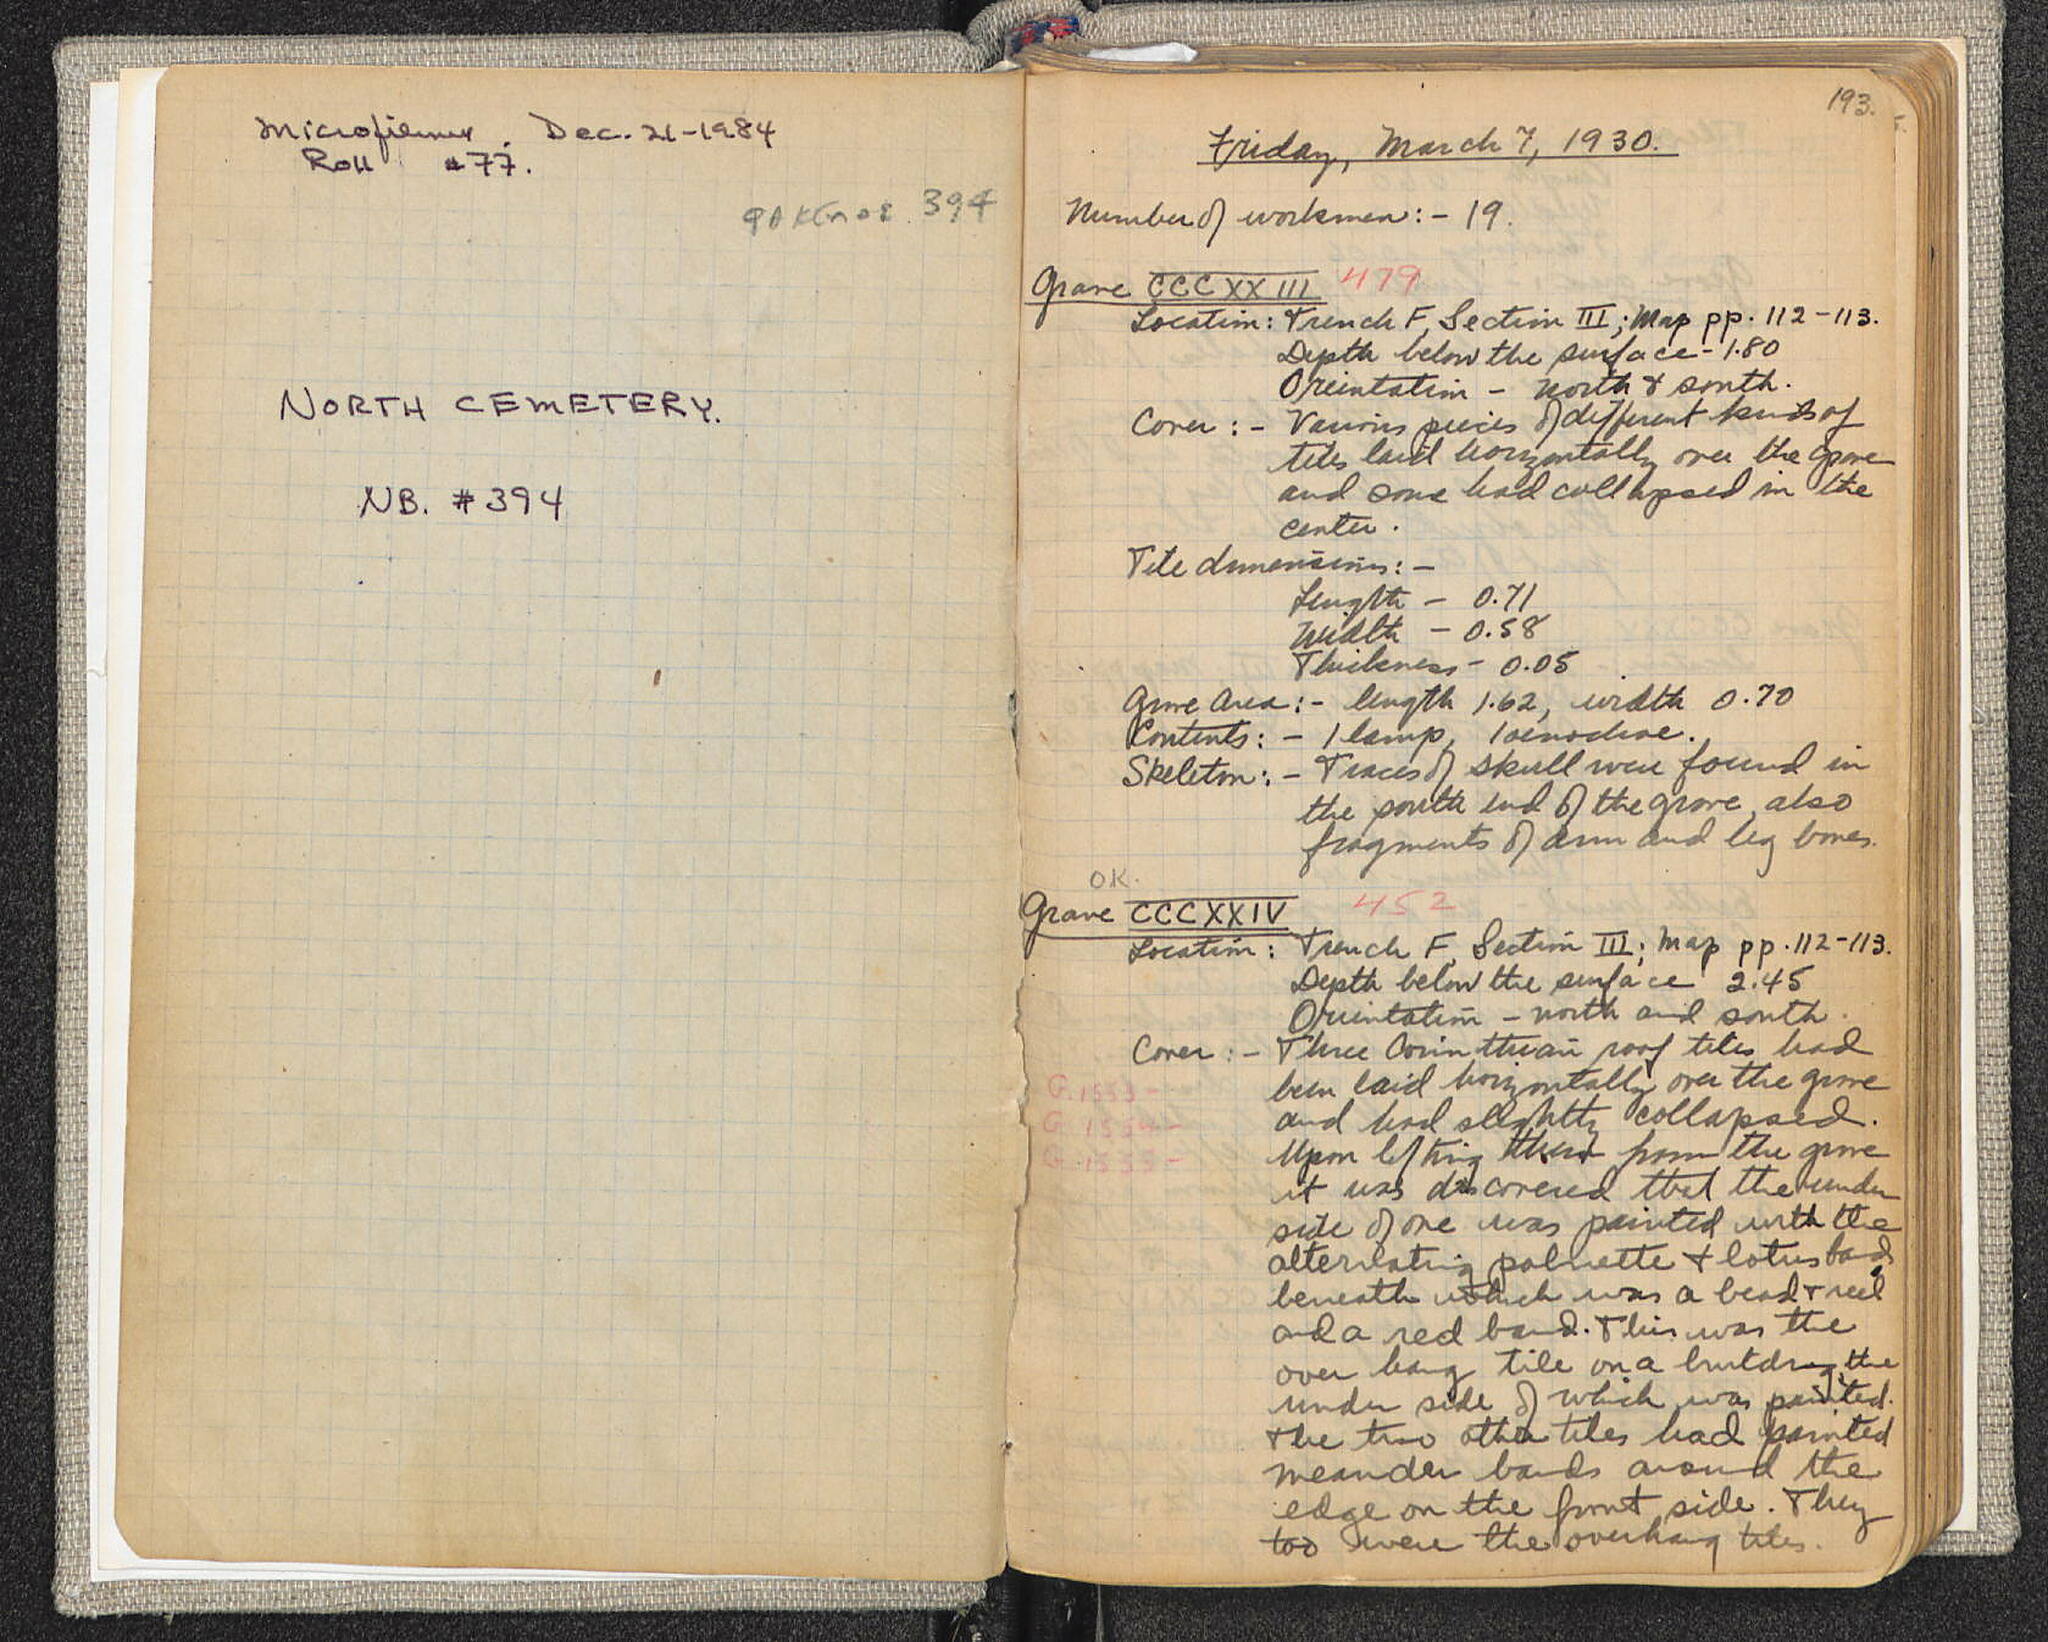 Microfilmed. Dec. 21-1984
Roll #77.
394
NORTH CEMETERY.
NB. #394
193.
Friday, March 7, 1930.
Number of workmen:- 19.
Grave CCCXXIII 479
Location: Trench F, Section III; Map pp. 112-113.
Depth below the surface - 1.80
Orientation - north & south.
Cover:- Various pieces of different kinds of
tiles laid horizontally over the grave
and some had collapsed in the
center.
Tile dimensions:-
Length - 0.71
Width - 0.58
Thickness - 0.05
Grave Area:- length 1.62, width 0.70
Contents:- 1 lamp, 1 oinochoe.
Skeleton:- Traces of skull were found in
the south end of the grave, also
fragments of arm and leg bones.
OK.
Grave CCCXXIV 452
Location: Trench F, Section III; Map pp. 112-113.
Depth below the surface 2.45
Orientation - north and south.
Cover:- Three Corinthian roof tiles had
G. 1553-
been laid horizontally over the grave
G. 1554-
and had slightly collapsed.
G. 1555-
Upon lifting them from the grave
it was discovered that the under
side of one was painted with the
alternating palmette & lotus band
beneath which was a bead & reel
and a red band. This was the
over hang tile on a building, the
under side of which was painted.
The two other tiles had painted
meander bands around the
edge on the front side. They
too were the overhang tiles.